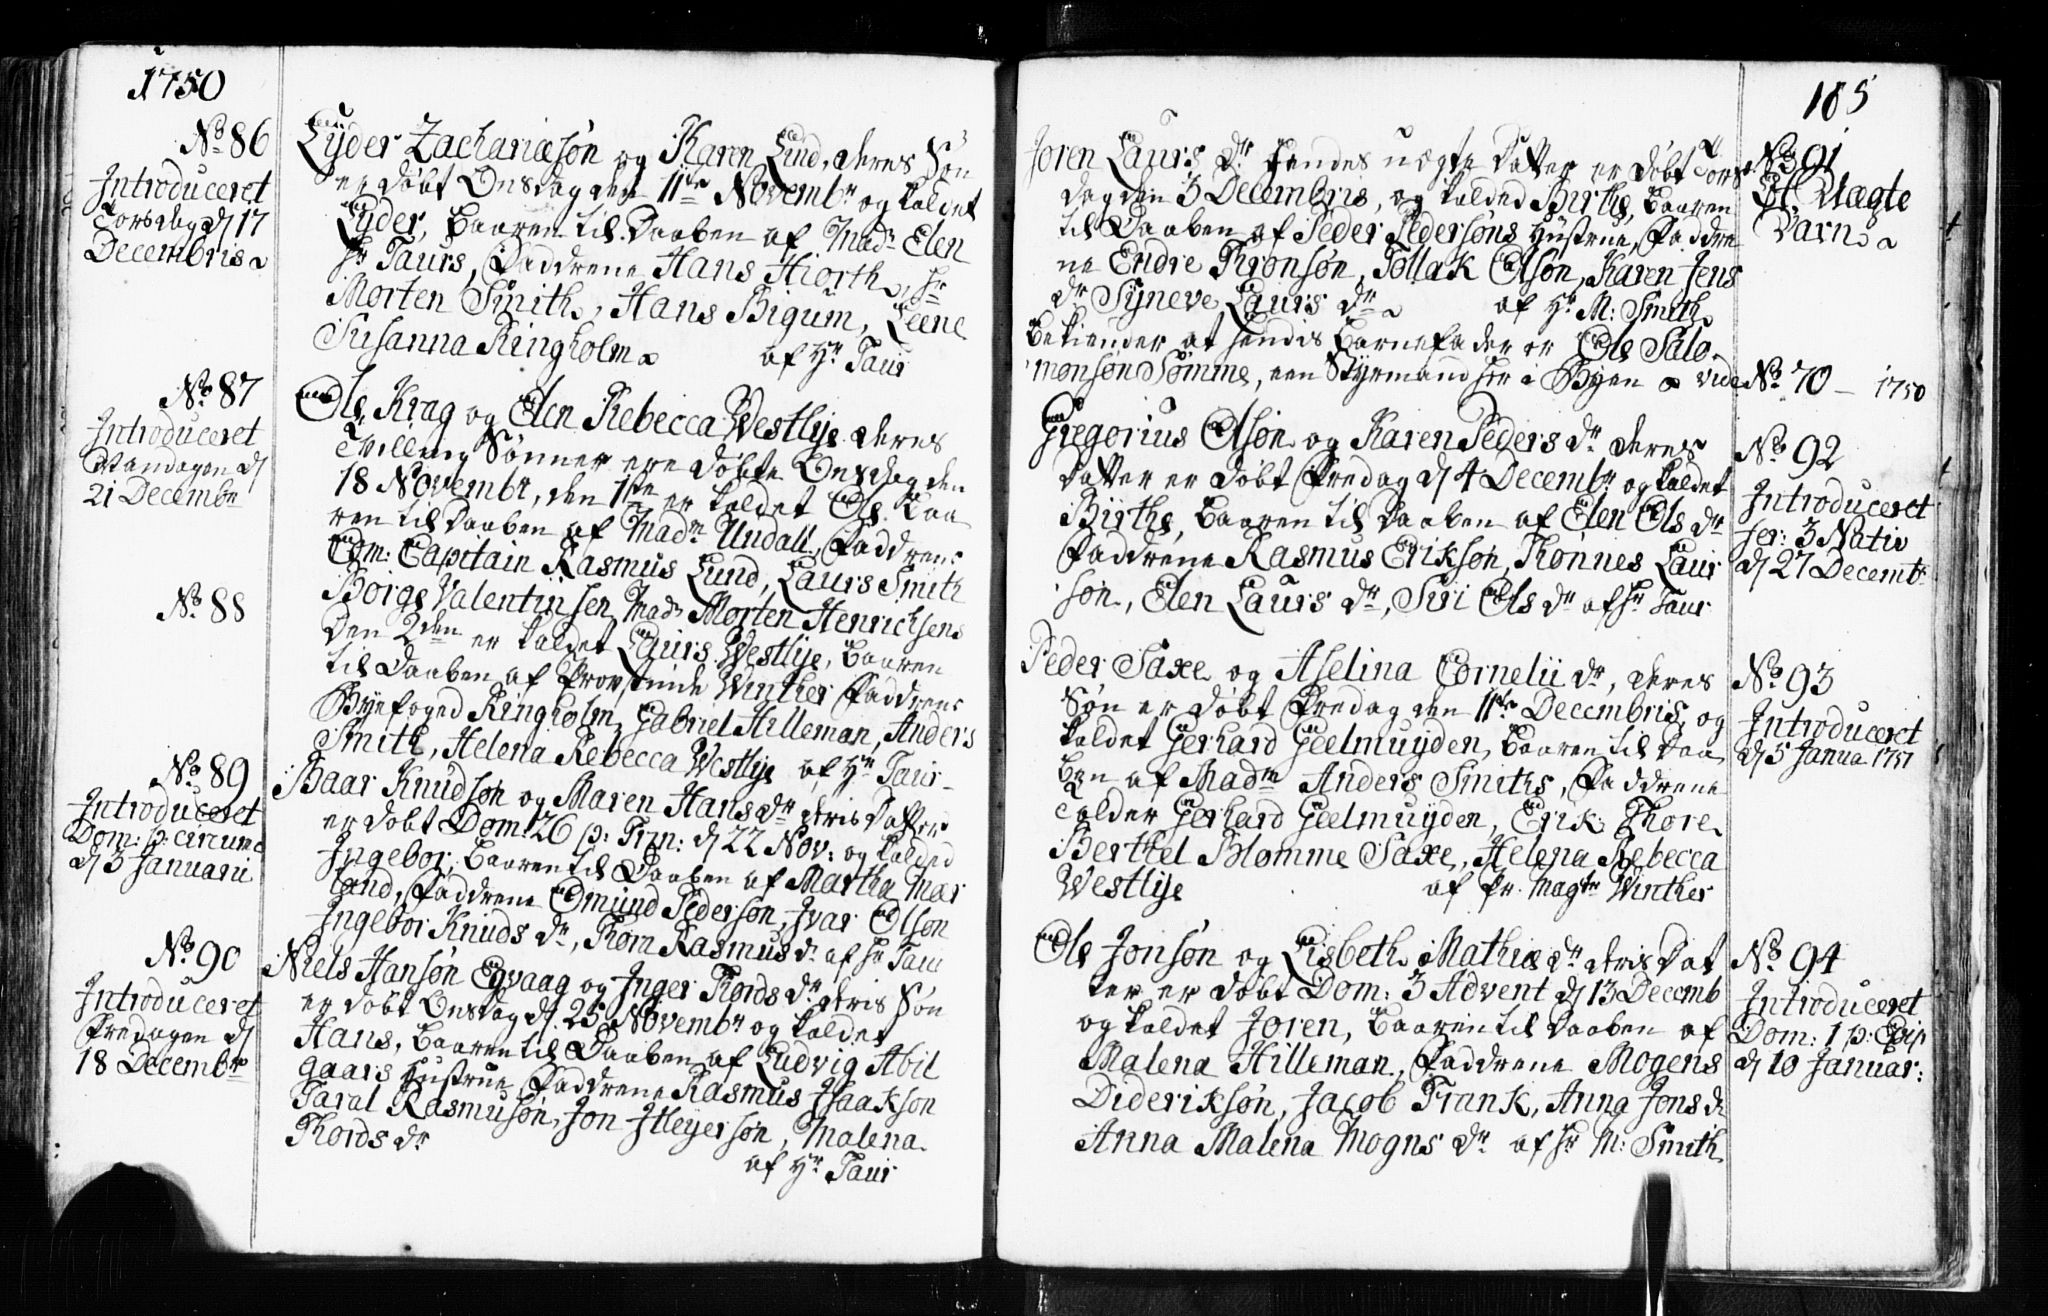 1750
No 86
Introduceret
Torsdag d 17
Decembris
Lyder Zachariæsøn og Karen Lind, deres Søn
er døbt Onsdag den 11te Novembr og kaldet
Lyder, baaren til Daaben af Madm Elen
Hr Taurs, Faddrene Hans Hiorth, Hr
Morten Smith, Hans Bigum, Leene
Susanna Ringholm af Hr Taur
No 87
Introduceret
Mandagen d
21 Decembr
Ole Krag og Elen Rebecca Westlye deres
Tvilling Sønner ere døbte Onsdag den
18 Novembr, den 1ste er kaldet Ole Baa
ren til Daaben af Madm Undall, Faddrene
Com: Capitain Rasmus Lund, Laurs Smith
Borge Valentinsen, Madm Morten Henrichsens
No 88
Den 2den er kaldet Laurs Westlye, baaren
til Daaben af Provstinde Winther Faddrene
Byefoged Ringholm, Gabriel Hilleman, Anders
Smith, Helena Rebecca Westlye af Hr Taur
No 89
Introduceret
Dom: p: circumc
d 3 Januarii
Baar Knudsøn og Maren Hans dr deris Datter
er døbt Dom: 26 p: Trin: d 22 Nov: og kalded
Ingebor, baaren til Daaben af Martha Mar
land, Faddrene Omund Pedersøn, Ivar Olson
Ingebor Knuds dr, Thora Rasmus dr af Hr Taur
No 90
Introduceret
Fredagen d
18 Decembr
Niels Hansøn Egvaag og Inger Thords dr deris Søn
er døbt Onsdag d 25 Novembr og kaldet
Hans, baaren til Daaben af Ludvig Abil
gaars Hustrue, Faddrene Rasmus Isaakson
Taral Rasmusøn, Jon Jtleyersøn, Malena
Thords dr
af Hr Taur
185
Joren Laurs dr hendes uægte Datter er døbt Tors
dag den 3 Decembris, og kalded Birthe, baaren
til Daaben af Peder Pedersøns Hustrue, Faddre
ne Endre Thronsøn, Tollak Olsøn, Karen Jens
dr Syneve Laurs dr af Hr M: Smith
bekiender at hendis Barnefader er Ole Salo
monsøn Sømme, een Styrmand her i Byen vide No 70 – 1750
No 91
Et Uægte
Barn
Gregorius Olsøn og Karen Peders dr deres
Datter er døbt Fredag d 4 Decembr og kaldet
Birthe, baaren til Daaben af Elen Ols dr
Faddrene Rasmus Erikson, Thønnes Laur
søn, Elen Laurs dr, Siri Ols dr af Hr Taur
No 92
Introduceret
fer: 3 Nativ
d 27 Decembr
Peder Saxe og Aselina Cornelii dr, deres
Søn er døbt Fredag den 11te Decembris, og
kaldet Gerhard Geelmuyden, baaren til Daa
ben af Madm Anders Smiths, Faddrene
Tolder Gerhard Geelmuyden, Erik Thore
Berthel Blomme Saxe, Helena Rebecca
Westlye af Pr. Magtr Winther
No 93
Introduceret
d 5 Janua 1751
Ole Jonsøn og Lisbeth Mathiæ dr deris Dat
ter er døbt Dom: 3 Advent d 13 Decemb
og kaldet Joren, baaren til Daaben af
Malena Hilleman, Faddrene Mogens
Dideriksøn, Jacob Frank, Anna Jons dr
Anna Malena Mogns dr af Hr M: Smith
No 94
Introduceret
Dom: 1 p: Epip
d 10 Januar: